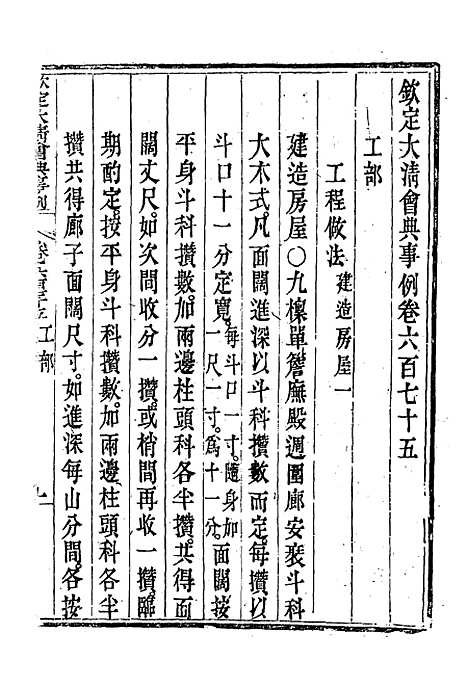 欽定大清會典事例卷六百七十五
工部
工程做法建造房屋一
建造房屋〇九檁單簷廡殿週圍廊安裝斗科
大木式凡面闊進深以斗科攢數而定每攢以
斗口十一分定寬每斗口一寸隨身加一尺一寸爲十一分面闊按
平身斗科攢數加兩邊柱頭科各半攢共得面
闊丈尺如次間收分一攢或梢間再收一攢臨
期酌定按平身斗科攢數加兩邊柱頭科各半
攢共得廊子面闊尺寸如進深每山分間各按
欽定大清會典事例
工部